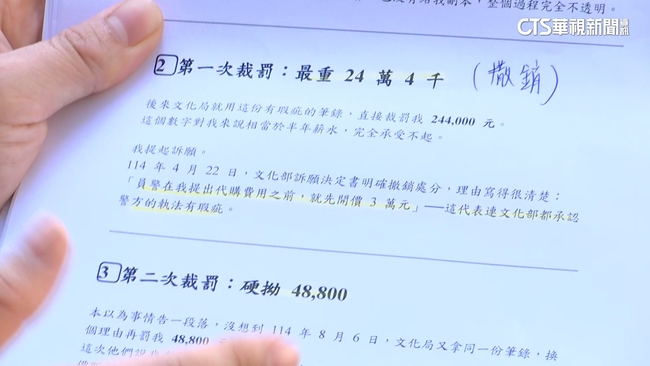 給我副本，整個過程完全不透明。
CTS華視新聞
2 第一次裁罰：最重 24 萬 4 千 （撤銷）
後來文化局就用這份有瑕疵的筆錄，直接裁罰我 244,000 元。
這個數字對我來說相當於半年薪水，完全承受不起。
我提起訴願。
114 年 4 月 22 日，文化部訴願決定書明確撤銷處分，理由寫得很清楚：
「員警在我提出代購費用之前，就先開價 3 萬元」——這代表連文化部都承認
警方的執法有瑕疵。
3 第二次裁罰：硬拗 48,800
本以為事情告一段落，沒想到 114 年 8 月 6 日，文化局又拿同一份筆錄，換
個理由再罰我 48,800
這次他們說